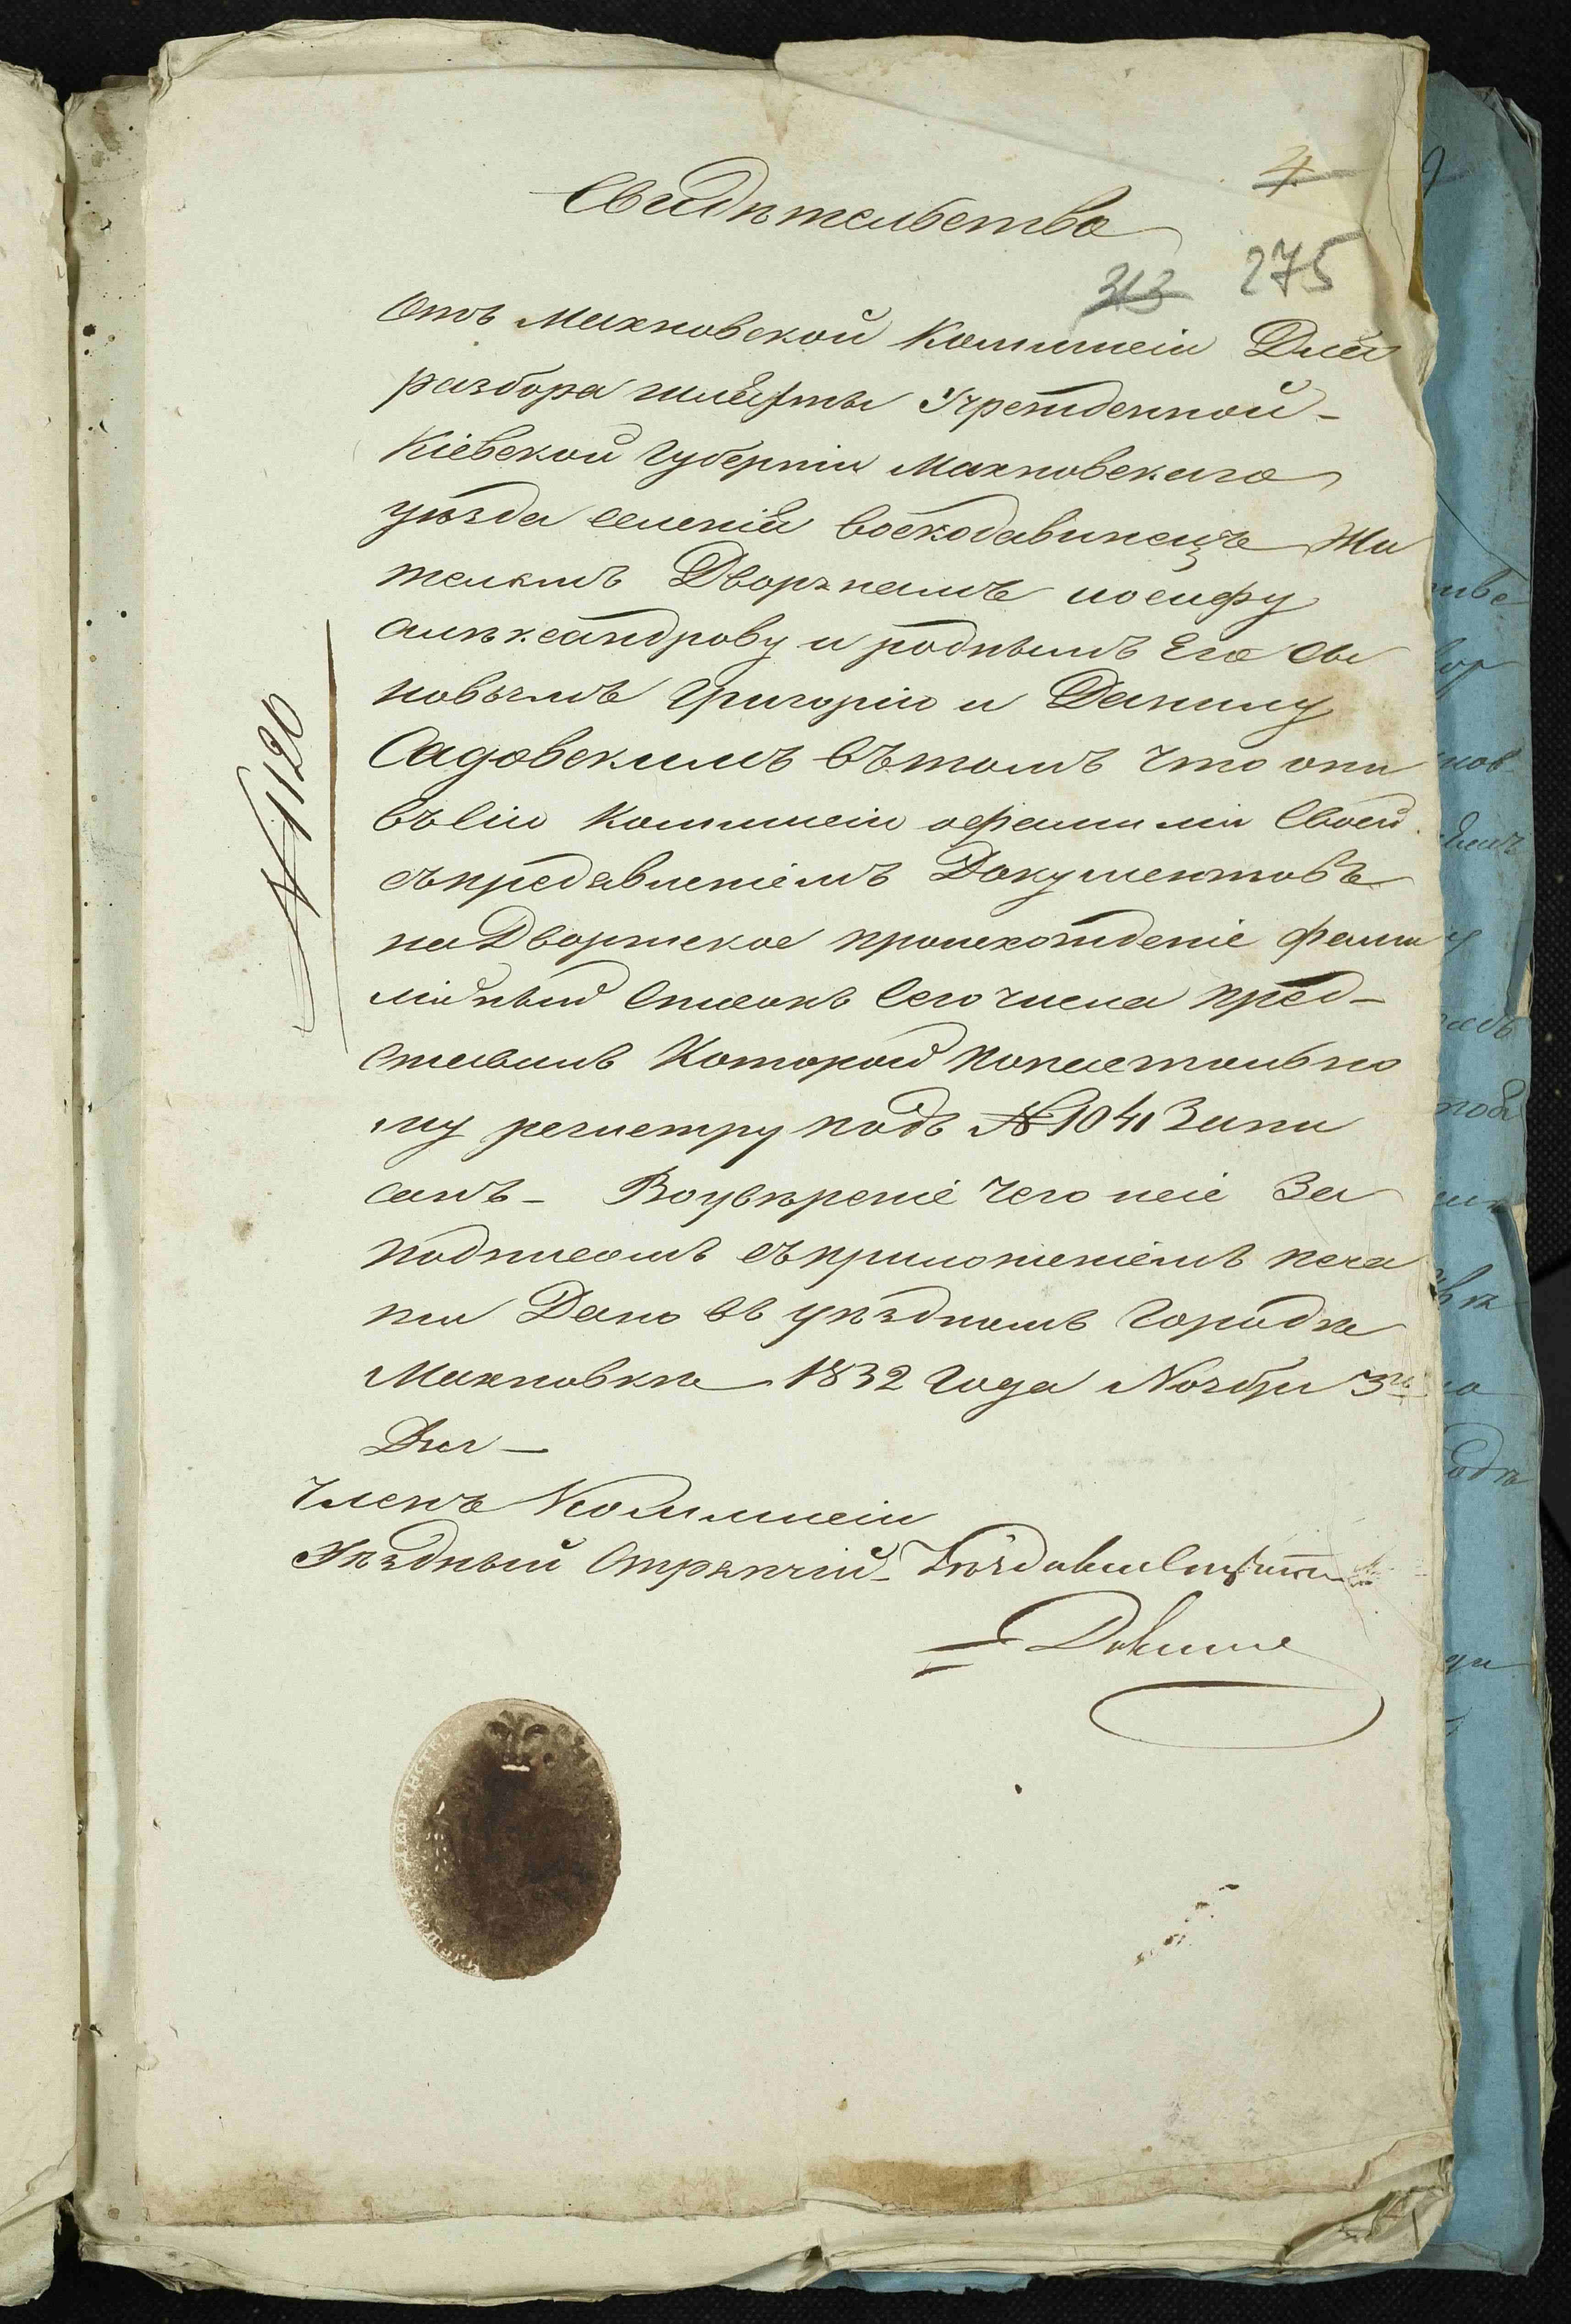 4
Свидѣтельство
313 275
Отъ Махновской Коммисіи Для
разбора шляхты Учрежденной -
Кіевской Губерніи Махновскаго
уѣзда селенія Воскодавинецъ Жи
телямъ Дворянамъ иосифу
Алѣксандрову и роднымъ Его Сы
новьямъ Григорію и Данилу
Садовскимъ въ томъ что они
въ Сію Коммисію о фамиліи Своей
съ предявленіемъ Документовъ
на Дворянское происхожденіе фами
лійный Списокъ Сего числа пред-
ставилъ Которой
му регистру подъ № 1041 Запи
санъ - Во увѣреніе чего сіе За
подписомъ съ приложеніемъ печа
ти Дано въ уѣздномъ Городкѣ
Махновкѣ 1832 Года Ноября 3го
Дня -
Членъ Коммисіи
Уѣздный Стряпчій -
№ 1120